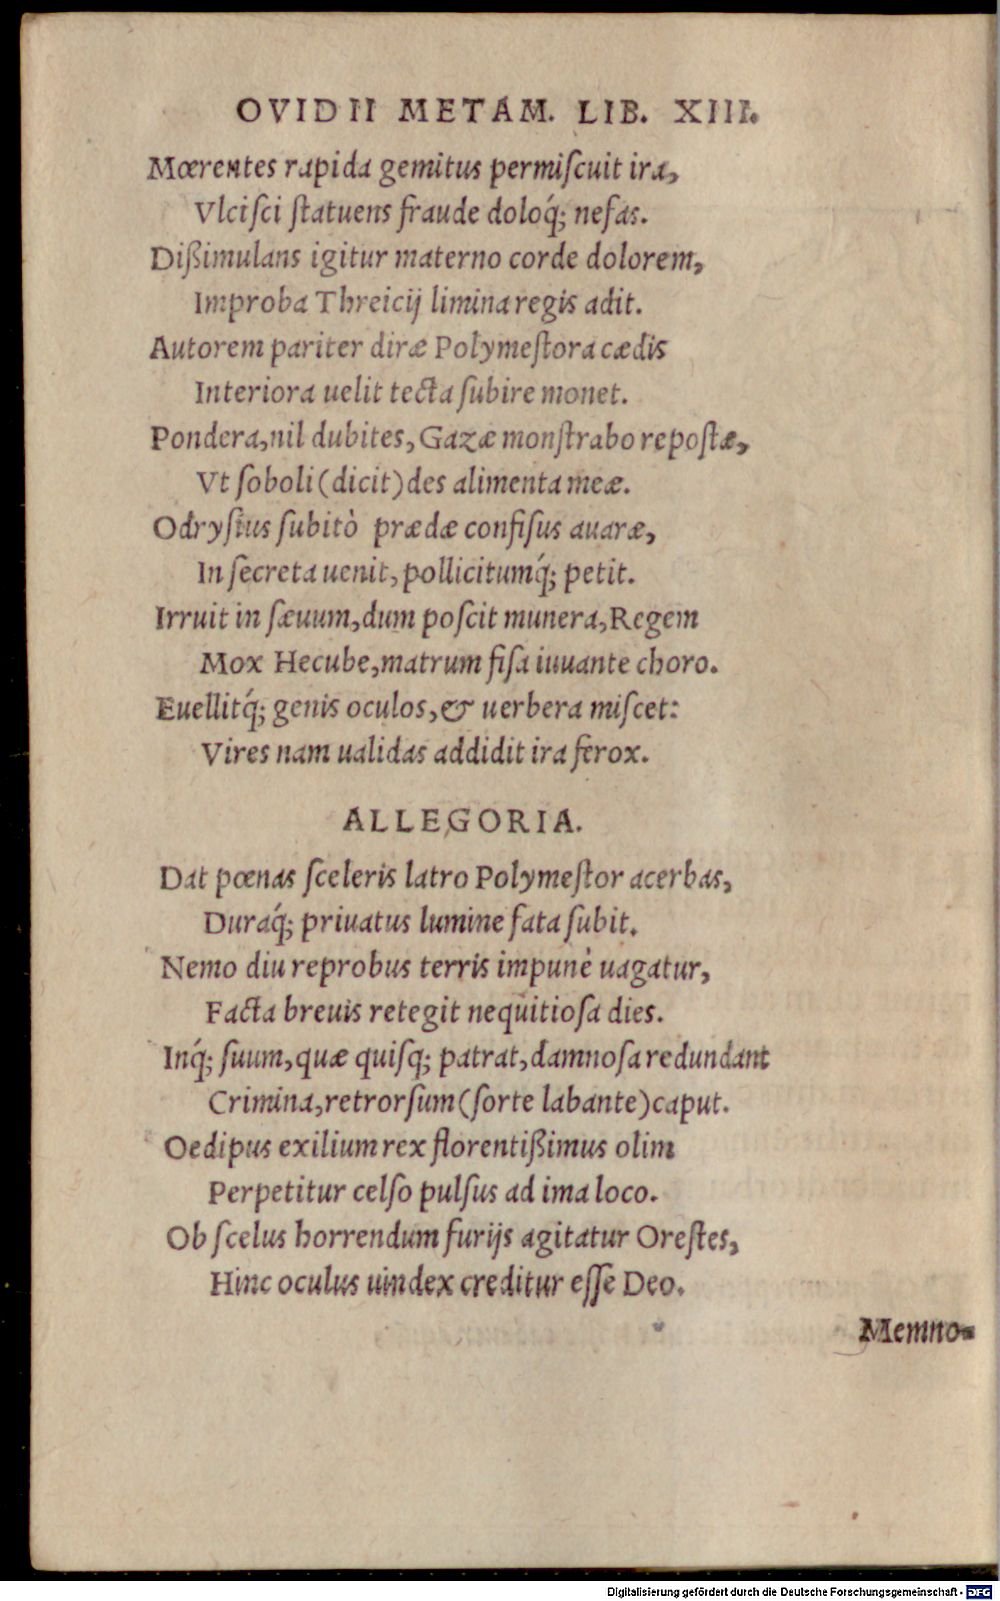 OVIDII METAM. LIB. XIII.
Mœrentes rapida gemitus permiſcuit ira,
Vlciſci ſtatuens fraude doloq́; nefas.
Dißimulans igitur materno corde dolorem,
Improba Threicij limina regis adit.
Autorem pariter diræ Polymeſtora cædis
Interiora uelit tecta ſubire monet.
Pondera, nil dubites, Gazæ monſtrabo repoſtæ,
Vt ſoboli (dicit) des alimenta meæ.
Odryſius ſubitò prædæ confiſus auaræ,
In ſecreta uenit, pollicitumq́; petit.
Irruit in ſæuum, dum poſcit munera, Regem
Mox Hecube, matrum fiſa iuuante choro.
Euellitq́; genis oculos, & uerbera miſcet:
Vires nam ualidas addidit ira ferox.
ALLEGORIA.
Dat pœnas ſceleris latro Polymeſtor acerbas,
Duraq́; priuatus lumine fata ſubit.
Nemo diu reprobus terris impunè uagatur,
Facta breuis retegit nequitioſa dies.
Inq́; ſuum, quæ quiſq; patrat, damnoſa redundant
Crimina, retrorſum (ſorte labante) caput.
Oedipus exilium rex florentißimus olim
Perpetitur celſo pulſus ad ima loco.
Ob ſcelus horrendum furijs agitatur Oreſtes,
Hinc oculus uindex creditur eſſe Deo.
Memno-
Digitalisierung gefördert durch die Deutsche Forschungsgemeinschaft - DFG